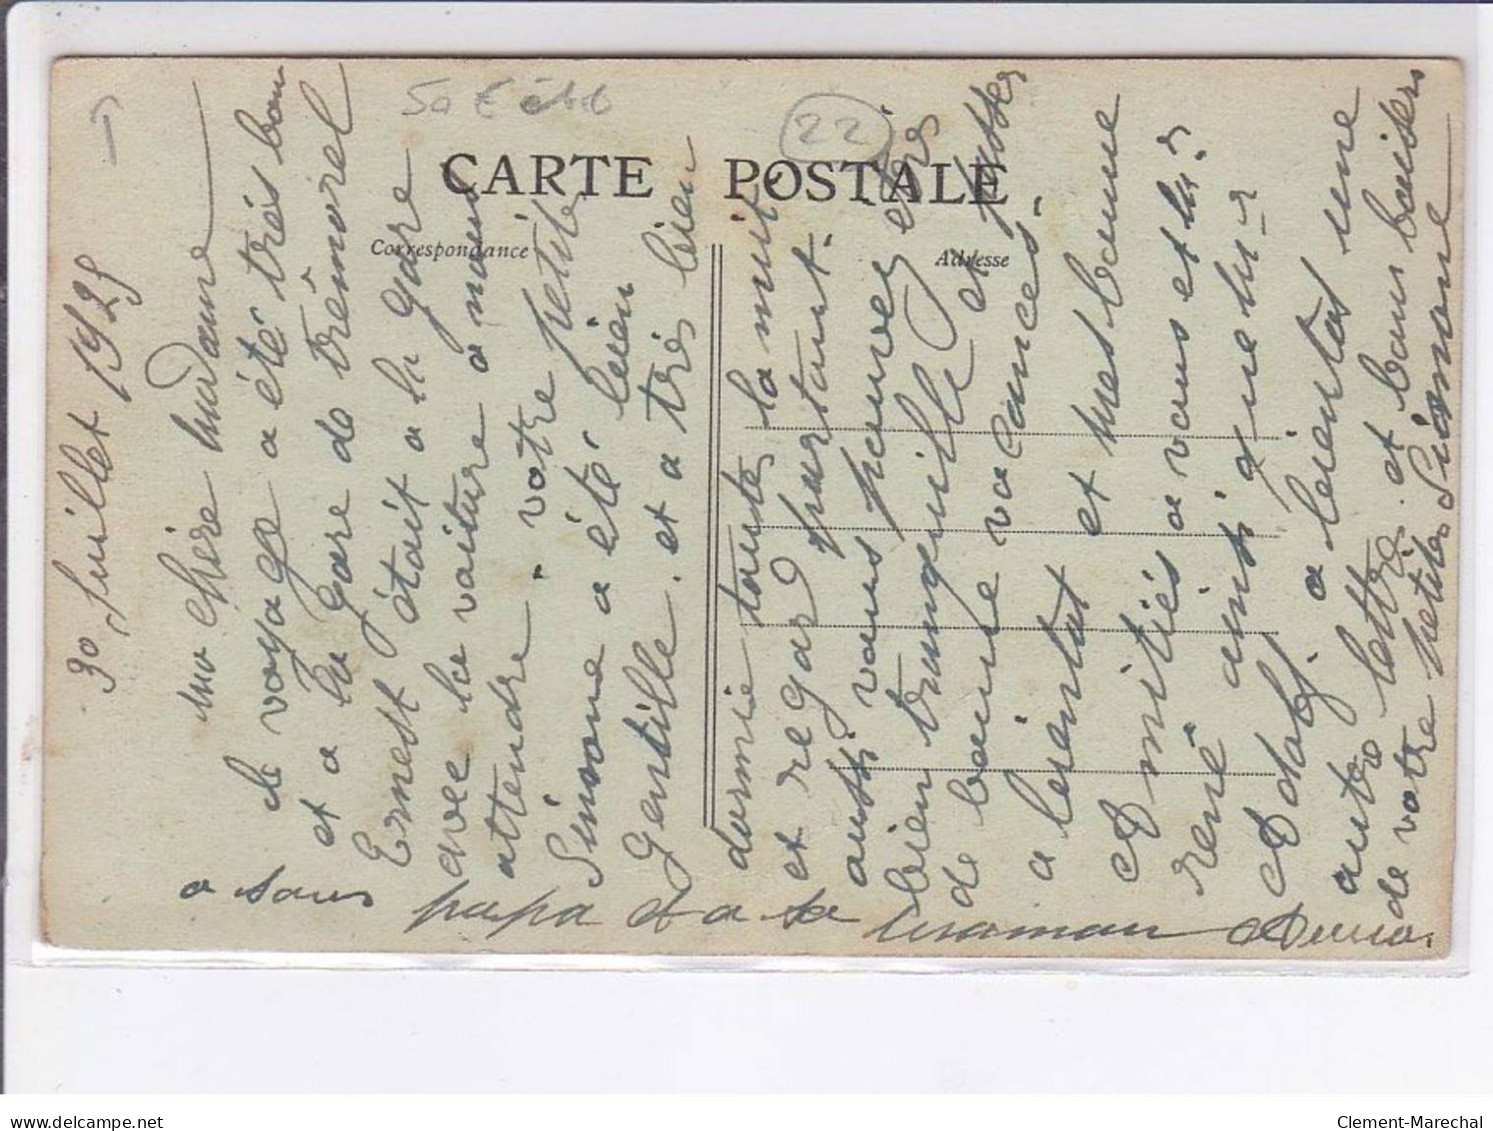 50 € état
22
CARTE POSTALE
Correspondance
Adresse
30 Juillet 1925
ma chère madame
le voyage a été très bon
et a la gare de trémorel
Ernest était a la gare
avec la voiture a nous
attendre. votre petite
Simone a été bien
Gentille. et a très bien
dormie toute la nuit
et regar partant.
aussi vous pauvez êtrs
bien tranquille et passer
de bonne vacances.
a bientot et mes bonne
Amitiés a vous et
rené ainsi que
Adolf. a bientot une
autre lettre. et bons baisers
de votre petite Simone
a sons papa et a sa maman
Clement-Marechal
delcampe.net